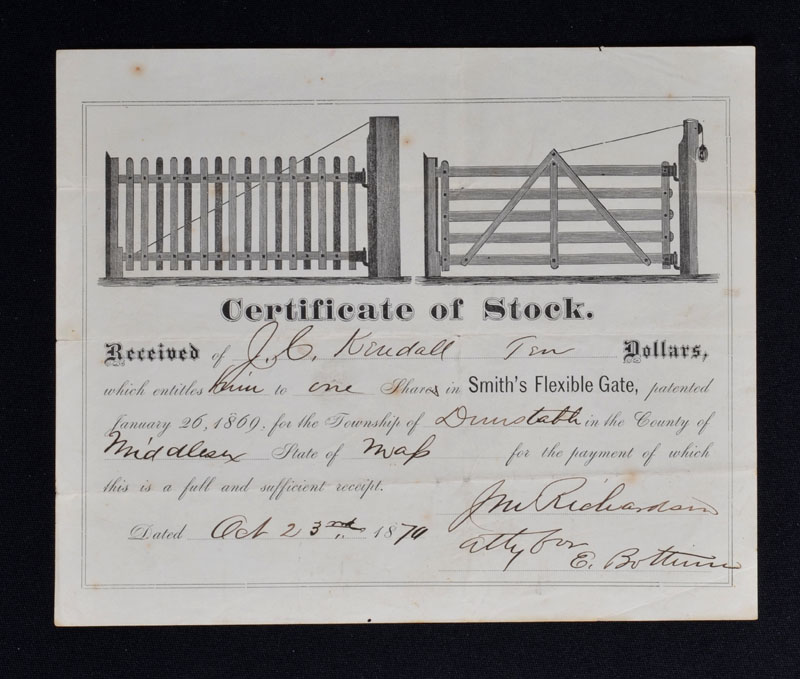 Certificate of Stock.
Received of J. C. Kendall Ten Dollars,
which entitles him to one Shares in Smith's Flexible Gate, patented
January 26, 1869, for the Township of Dunstable in the County of
Middlesex State of Mass for the payment of which
this is a full and sufficient receipt.
Dated Oct 23rd 1870
Richardson
Atty for
E. Bottum